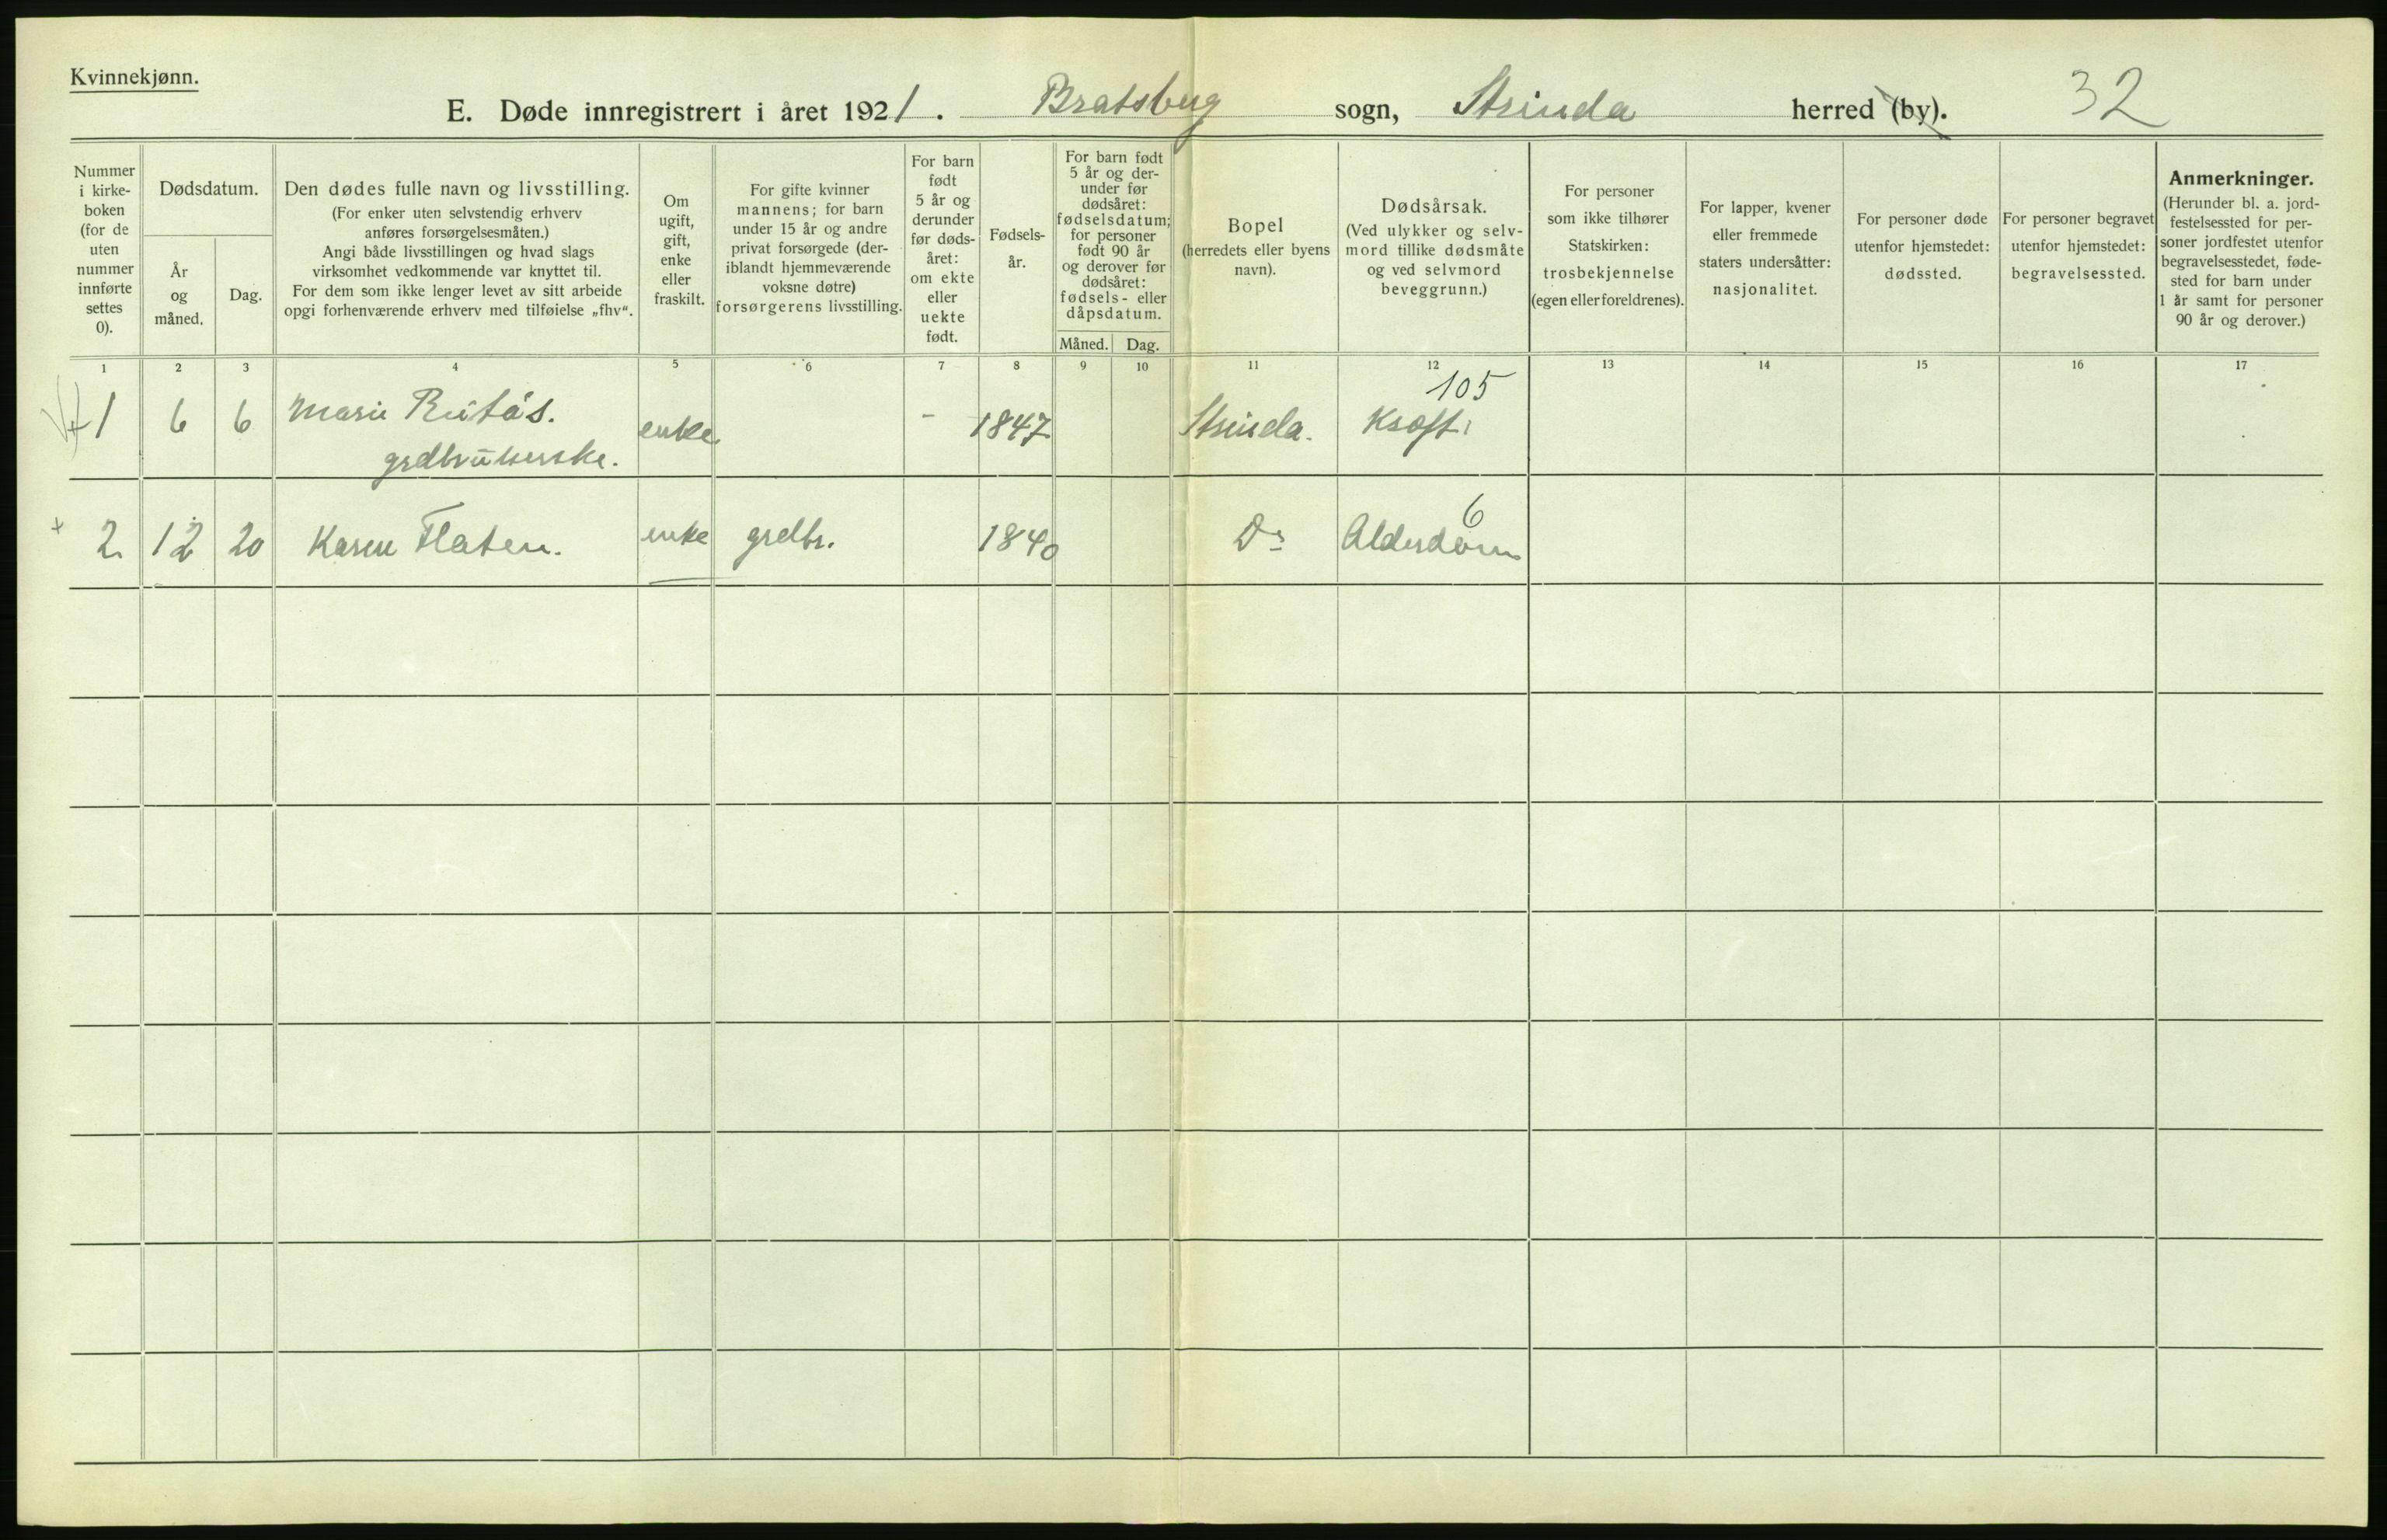 Kvinnekjønn.
E. Døde innregistrert i året 1921. Bratsberg sogn, Strinda herred (by). 32
Nummer
i kirke-
boken
(for de
uten
nummer
innførte
settes
0).
Dødsdatum.
År
og
måned.
Dag.
Den dødes fulle navn og livsstilling.
(For enker uten selvstendig erhverv
anføres forsørgelsesmåten.)
Angi både livsstillingen og hvad slags
virksomhet vedkommende var knyttet til.
For dem som ikke lenger levet av sitt arbeide
opgi forhenværende erhverv med tilføielse „fhv“.
Om
ugift,
gift,
enke
eller
fraskilt.
For gifte kvinner
mannens; for barn
under 15 år og andre
privat forsørgede (der-
iblandt hjemmeværende
voksne døtre)
forsørgerens livsstilling.
For barn
født
5 år og
derunder
før døds-
året:
om ekte
eller
uekte
født.
Fødsels-
år.
For barn født
5 år og der-
under før
dødsåret:
fødselsdatum;
for personer
født 90 år
og derover før
dødsåret:
fødsels- eller
dåpsdatum.
Måned. Dag.
Bopel
(herredets eller byens
navn).
Dødsårsak.
(Ved ulykker og selv-
mord tillike dødsmåte
og ved selvmord
beveggrunn.)
For personer
som ikke tilhører
Statskirken:
trosbekjennelse
(egen eller foreldrenes).
For lapper, kvener
eller fremmede
staters undersåtter:
nasjonalitet.
For personer døde
utenfor hjemstedet:
dødssted.
For personer begravet
utenfor hjemstedet:
begravelsessted.
Anmerkninger.
(Herunder bl. a. jord-
festelsessted for per-
soner jordfestet utenfor
begravelsesstedet, føde-
sted for barn under
1 år samt for personer
90 år og derover.)
1 2 3 4 5 6 7 8 9 10 11 12 13 14 15 16 17
105
1 6 6 Marie enke - 1847 Strinda. Kræft.
grdbrukerske.
6
2 12 20 Karen Flaten. enke grdbr. 1840 Do Alderdom